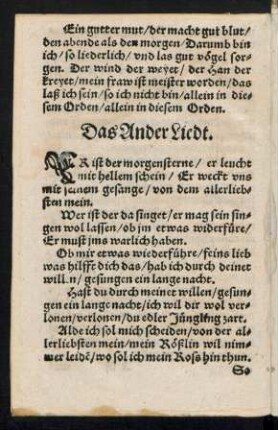 Ein gutter mut/der macht gut blut/
den abende als den morgen/Darumb bin
ich/so liederlich/vnd las gut vögel sor-
gen. Der wind der weyet/der Han der
kreyet/mein fraw ist meister worden/das
laß ich sein/so ich nicht bin/allein in die-
sem Orden/allein in diesem Orden.
Das Ander Liedt.
ER ist der morgensterne/er leucht
mit hellem schein/Er weckt vns
mit seinem gesange/von dem allerlieb-
sten mein.
Wer ist der da singet/er mag sein sin-
gen wol lassen/ob jm etwas widerfüre/
Er must jms warlich haben.
Ob mir etwas wiederführe/feins lieb
was hilfft dich das/hab ich durch deinet
willen/gesungen ein lange nacht.
Hast du durch meinet willen/gesun-
gen ein lange nacht/ich wil dir wol ver-
lonen/verlonen/du edler Jüngling zart.
Alde ich sol mich scheiden/von der al-
lerliebsten mein/mein Rößlin wil nim-
mer leidē/wo sol ich mein Ross hin thun.
So